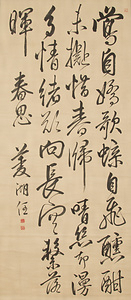 鶯自嬌歌蝶自飛醺酣
未擬惜春歸晴絲却漫
多情緒欲向長空繫落
暉
春思 菱湖任